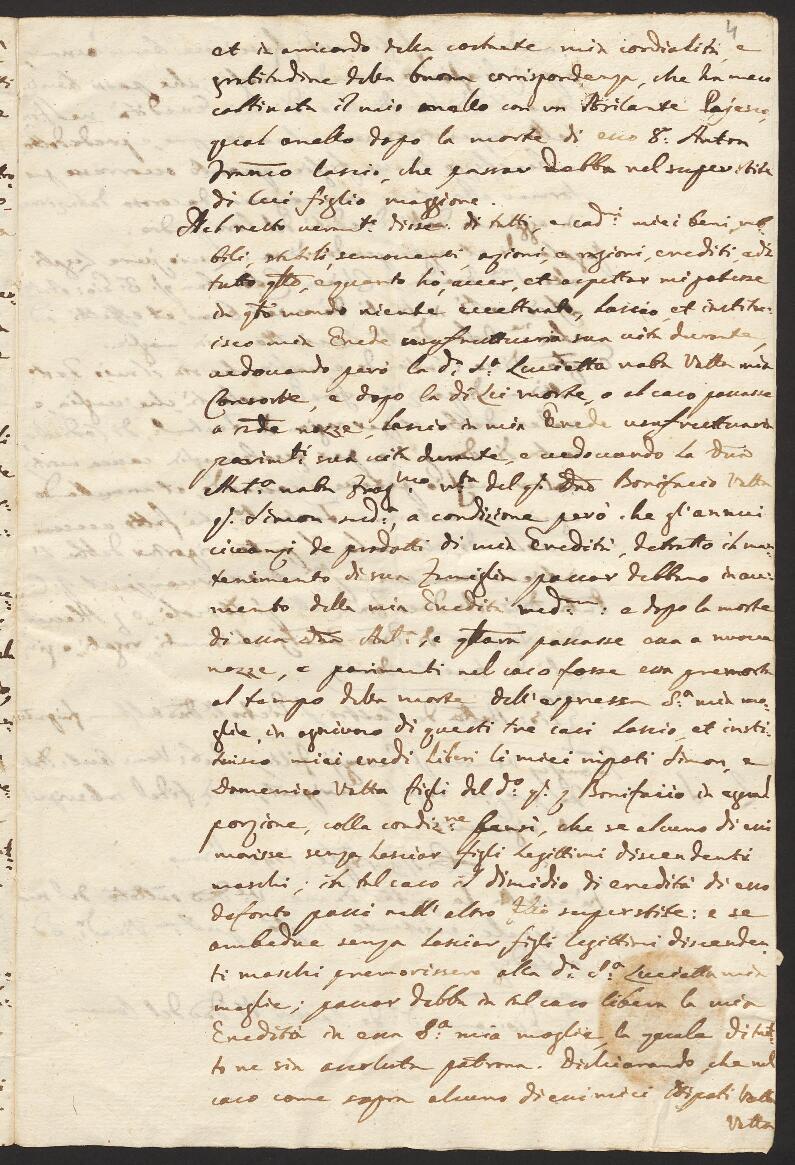 4
et in aricordo della costante mia cordialità, e
gratitudine della buona corrispondenza, che ha meco
coltivata il mio anello con un Brilante
qual anello dopo la morte di esso S.r Anton
Franc.o lascio, che passar debba nel superstite
di lui figlio maggiore.
Nel resto disse di tutti, e cad.i miei beni, mo-
bili, stabili, semoventi, azioni, e ragioni, crediti, e di
tutto q.to, e quanto hò, aver, et aspettar mi potesse
in q.to mondo niente eccettuato, Lascio et institu-
isco mia Erede usufruttuaria sua vita durante,
vedovando però la d.a S.a Lucietta nata Vatta mia
Consorte, e dopo la di Lei morte, o al caso passasse
a nozze, lascio in mia Erede usufruttuaria
parim.ti sua vita durante, e vedovando la
Ant.a nata del q.m Bonifacio Vatta
q.m Simon sud.o, a condizione però che gl'annui
civanzi de prodotti di mia Eredità, detratto il man-
tenimento di sua Famiglia passar debbano in au-
mento della mia Eredità med.ma: e dopo la morte
di essa Ant.a, e passasse essa a nuove
nozze, e parimenti nel caso fosse essa premorta
al tempo della morte dell'espressa S.a mia mo-
glie, in ogn'uno di questi tre casi Lascio, et insti-
tuisco miei eredi Liberi li miei nipoti Simon, e
Domenico Vatta figli del d.o q.m Bonifacio in egual
porzione, colla condiz.ne, che se alcuno di essi
morisse senza lasciar figli legittimi discendenti
maschi; in tal caso il dimidio di eredità di esso
defonto passi nell'altro superstite: e se
ambedue senza lasciar figli legittimi discenden-
ti maschi premorissero alla d.a S.a Lucietta mia
moglie; passar debba in tal caso libera la mia
Eredità in essa S.a mia moglie, la quale di tut-
to ne sia assoluta patrona. Dichiarando, che nel
caso come sopra alcuno di essi miei Nipoti Vatta
Vatta